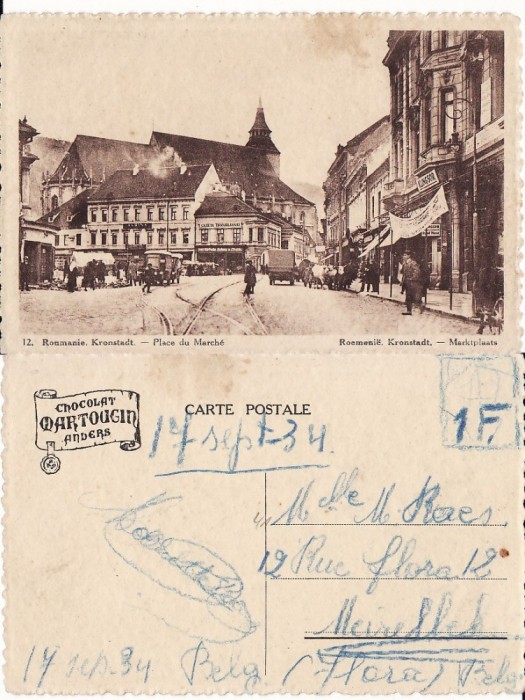 12. Roumanie. Kronstadt. — Place du Marché
Roemenië. Kronstadt. — Marktplaats
CHOCOLAT
MARTOUGIN
ANVERS
CARTE POSTALE
1F.
17 sept-34.
Mlle M Raes
12 Rue Flora 12
Meirelbek
(Flora) Belg
17 sep. 34 Belg